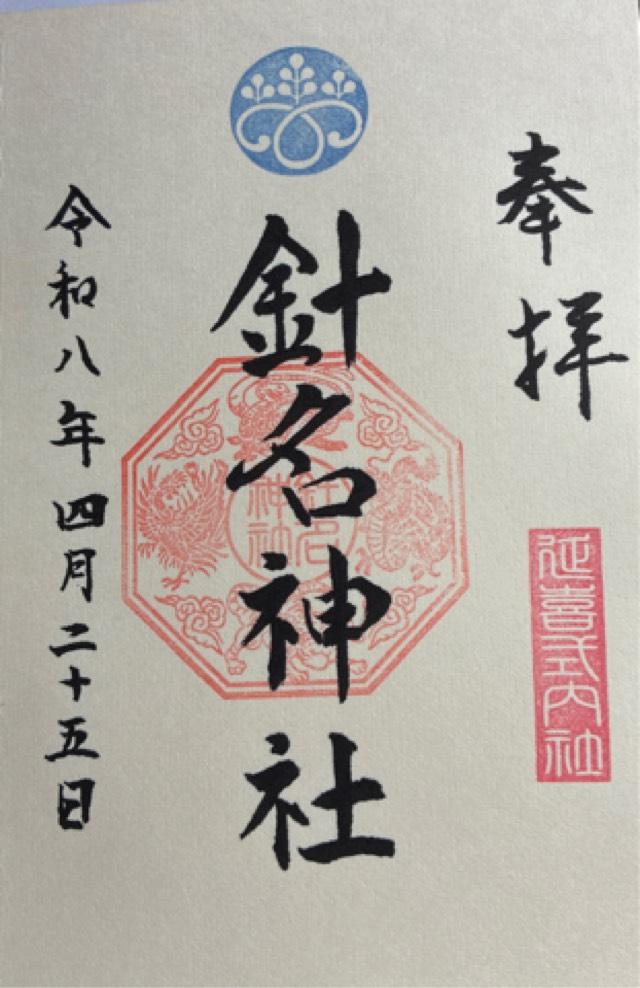 奉拝
延喜式内社
針名神社
針名神社
令和八年四月二十五日